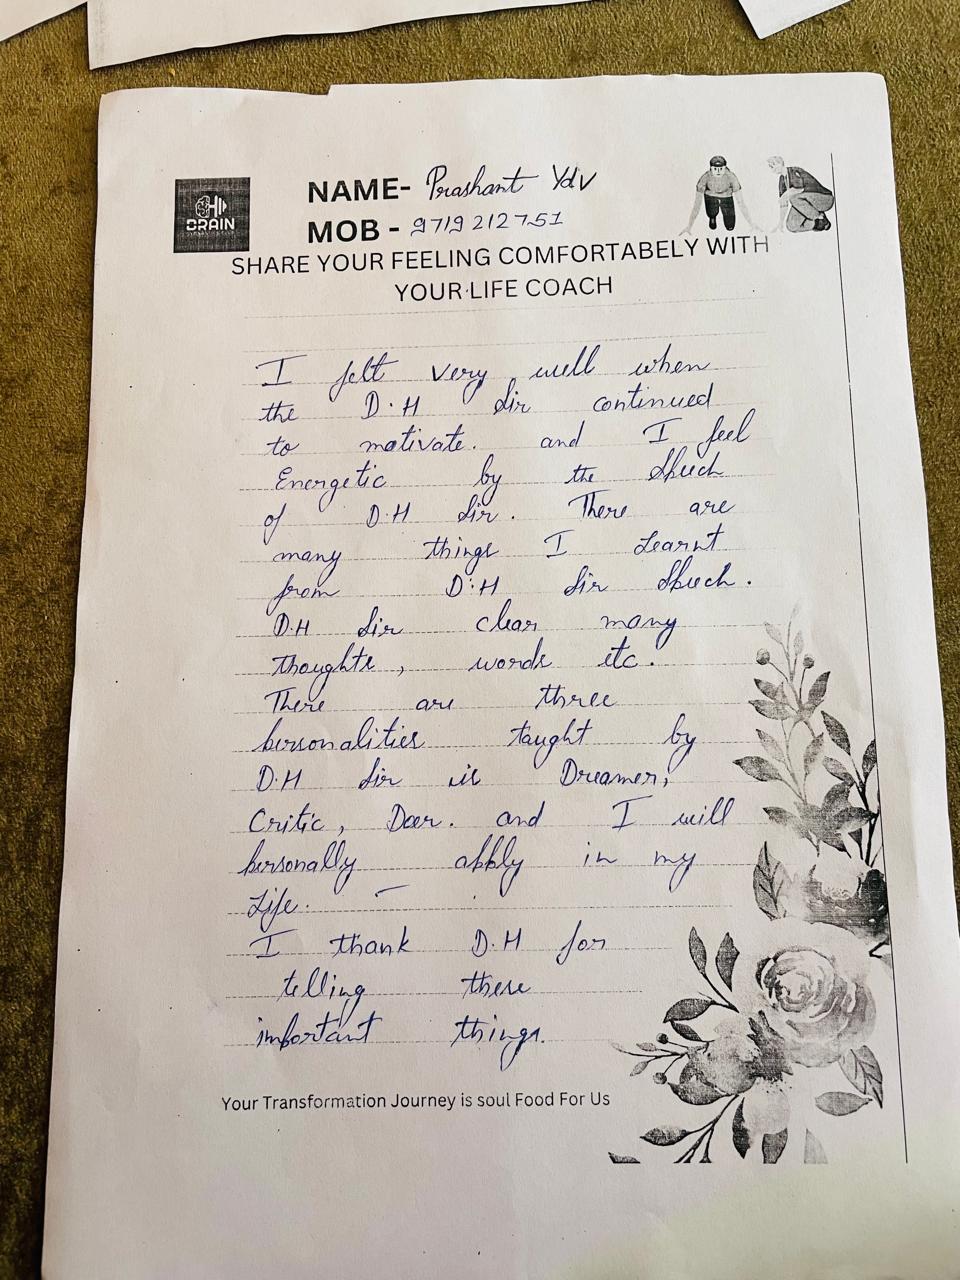 BRAIN
NAME- Prashant Ydv
MOB - 9719212751
SHARE YOUR FEELING COMFORTABELY WITH
YOUR LIFE COACH
I felt very well when
the D.H Sir continued
to motivate. and I feel
Energetic by the Speech
of D.H Sir. There are
many things I Learnt
from D.H Sir Speech.
D.H Sir clear many
thoughts, words etc.
There are three
personalities taught by
D.H Sir is Dreamer,
Critic, Doer. and I will
personally apply in my
Life. -
I thank D.H for
telling these
important things.
Your Transformation Journey is soul Food For Us